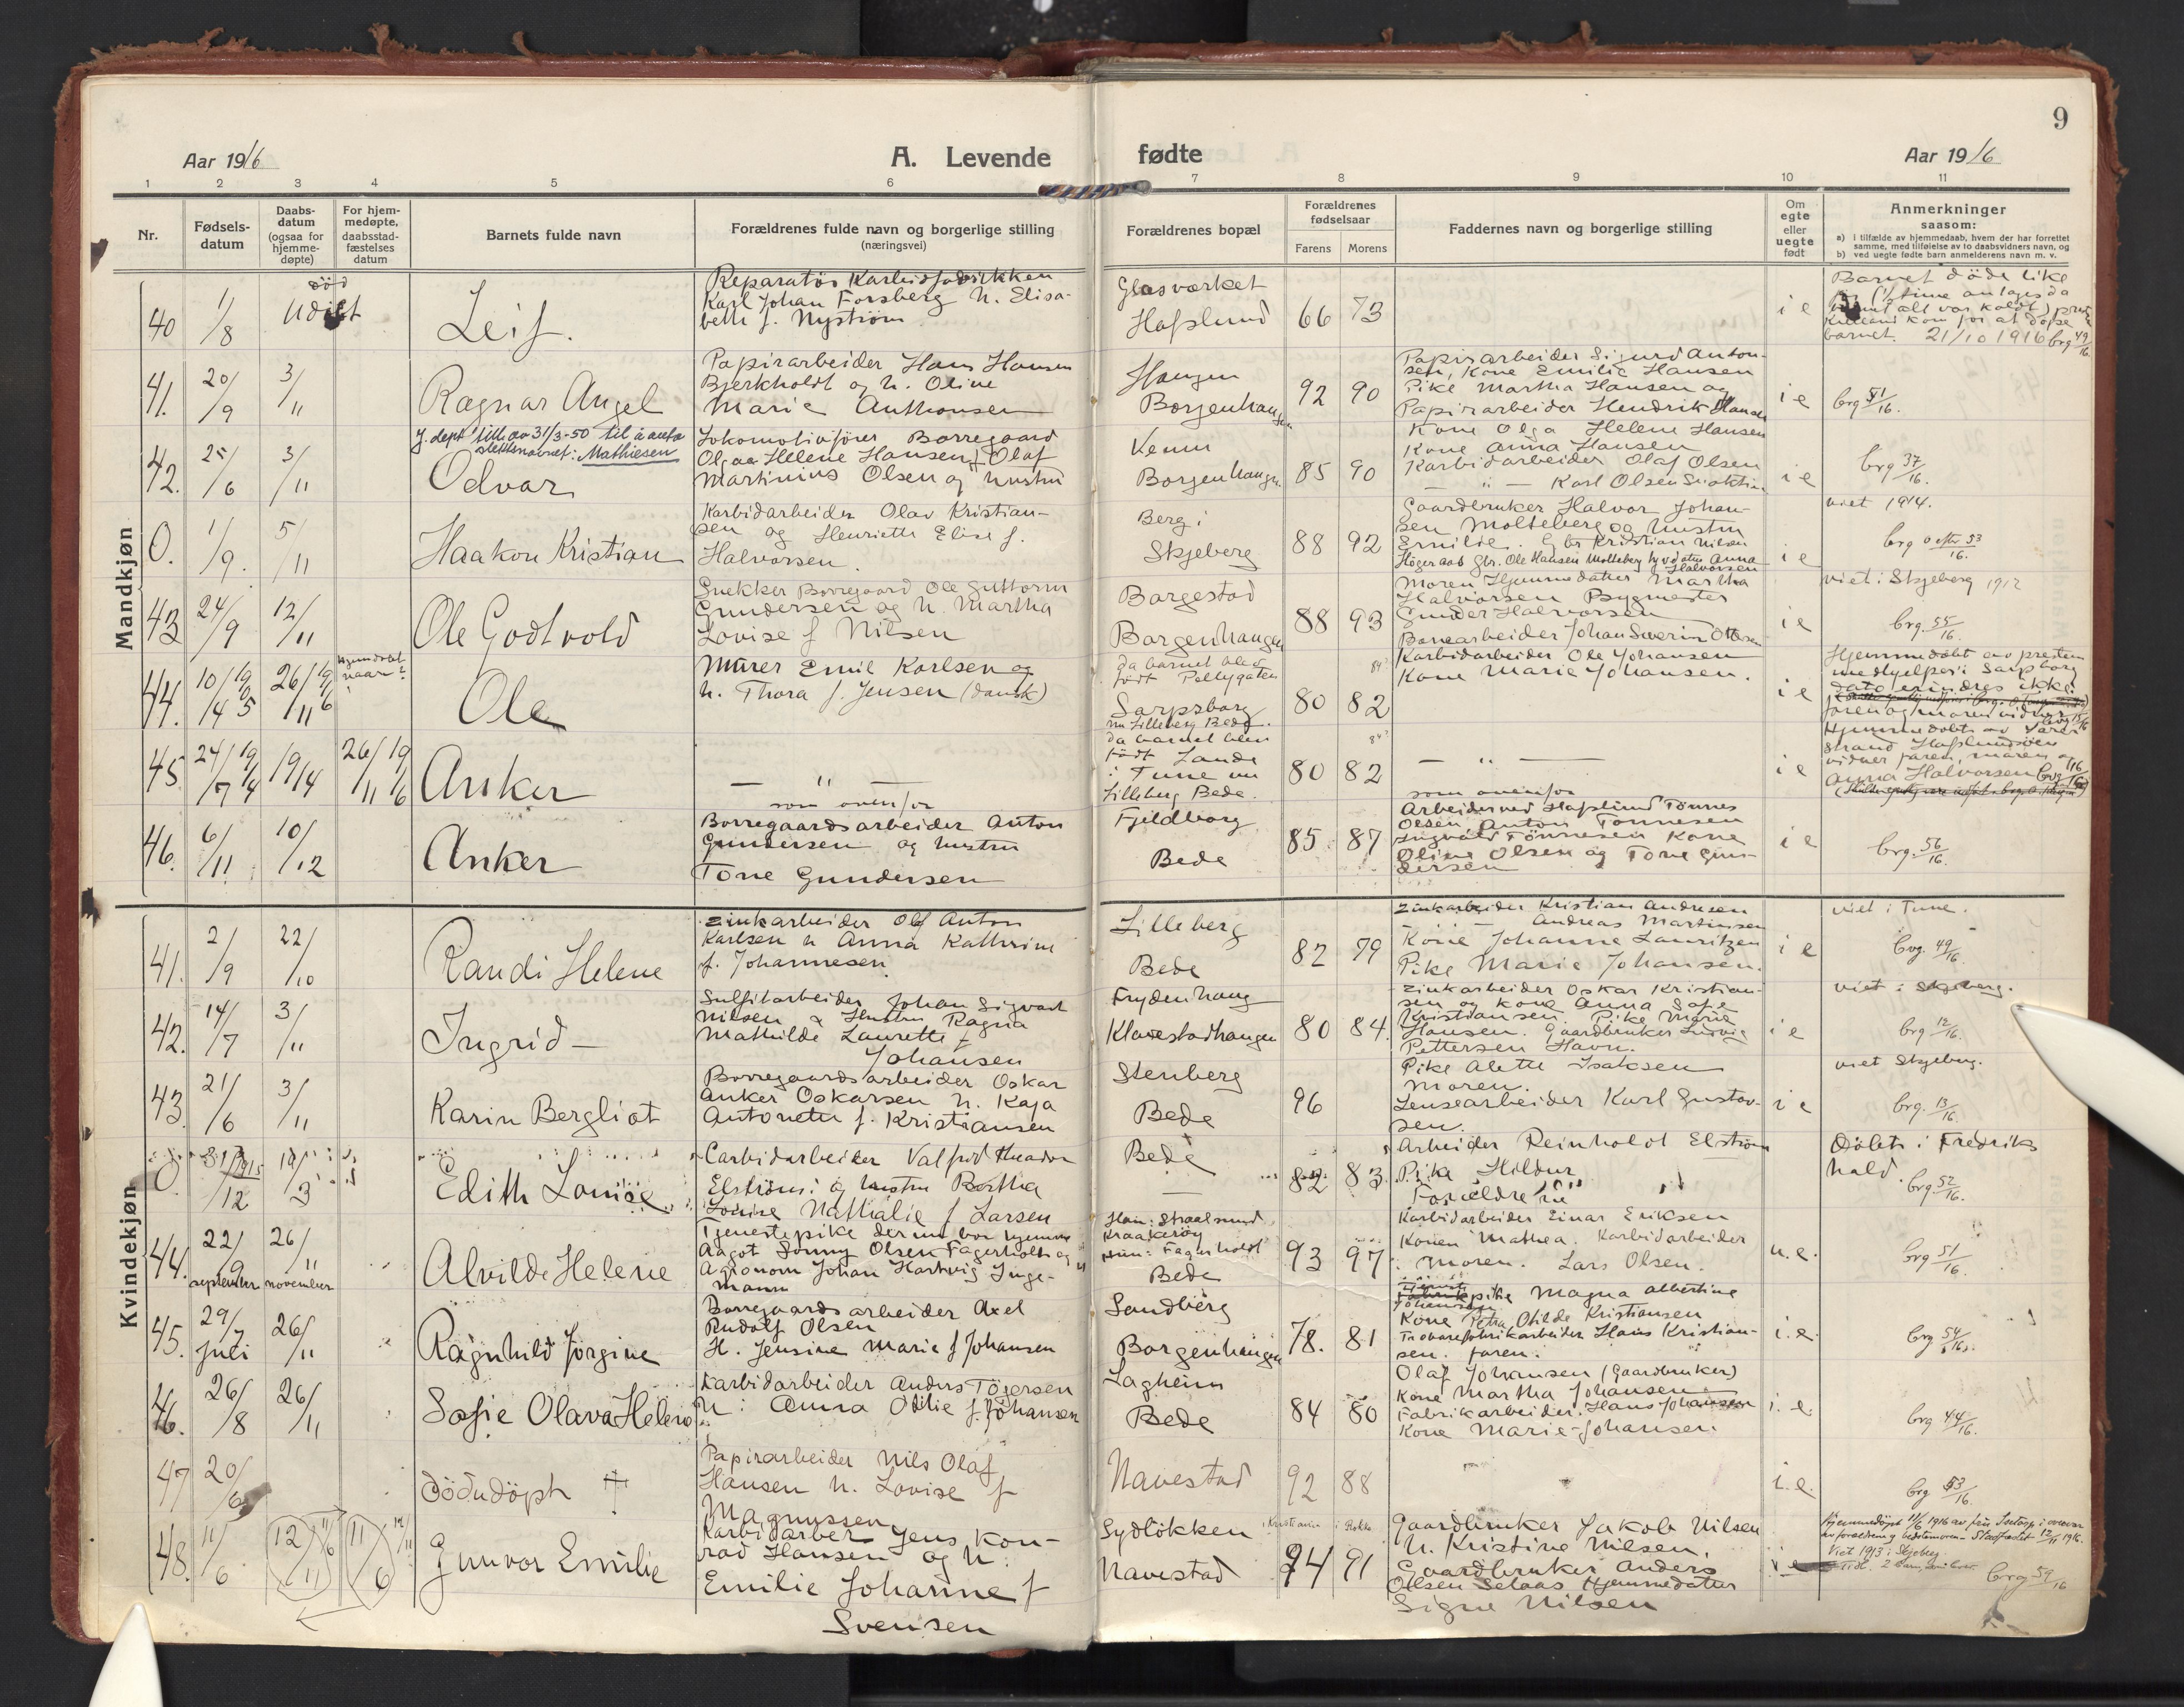 9
Aar 1916
A. Levende fødte
Aar 1916
1 2 3 4 5 6 7 8 9 10 11
Nr.
Fødsels-
datum
Daabs-
datum
(ogsaa for
hjemme-
døpte)
For hjem-
medøpte,
daabsstad-
fæstelses
datum
Barnets fulde navn
Forældrenes fulde navn og borgerlige stilling
(næringsvei)
Forældrenes bopæl
Forældrenes
fødselsaar
Farens Morens
Faddernes navn og borgerlige stilling
Om
egte
eller
uegte
født
Anmerkninger
saasom:
a) i tilfælde av hjemmedaab, hvem der har forrettet
samme, med tilføielse av to daabsvidners navn, og
b) ved uegte fødte barn anmelderens navn m. v.
Mandkjøn
40
1/8
død
Udøbt
Leif.
Reparatør Karbidfabrikken
Karl Johan Forsberg h. Elisa-
beth f. Nystrøm
Glasværket
Hafslund
66 73
i e
Barnet døde like
barnet. 21/10 1916 brg 49/16.
41.
20/9
3/11
Ragnar Angel
Papirarbeider Hans Hansen
Bjerkholdt og h. Oline
Marie Anthonsen
Haugen
Borgenhaugen
92 90
Papirarbeider Sigurd Anton-
sen, Kone Emilie Hansen
Pike Martha Hansen og
Papirarbeider Hendrik Hansen
i e
brg 51/16.
42.
25/6
3/11
J. dept till av 31/3-50 til å anta
slektsnavnet: Mathiesen
Odvar
Lokomotivfører Borregaard
Olga Helene Hansen f Olaf
Martinius Olsen og hustru
Venum
Borgenhaugen
85 90
Kone Olga Helene Hansen
Kone Anna Hansen
Karbidarbeider Olaf Olsen
— " — Karl Olsen
i e
brg 37/16.
0.
1/9.
5/11
Haakon Kristian
Karbidarbeider Olav Kristian-
sen og Henriette Elise f.
Halvorsen.
Berg i
Skjeberg
88 92
Gaardbruker Halvor Johan-
sen Molteberg og hustru
Emilie. Gbr Kristian Nilsen
Høgeraas Gbr. Ole Hansen Molteberg hjvdatter Anna
Halvorsen
i e
viet 1914.
brg 0 efter 53/16.
43
24/9
12/11
Ole Godtvold
Snekker Borregaard Ole Guttorm
Gundersen og h. Martha
Lovise f Nilsen
Borgestad
Borgenhaugen
88 93
Moren Hjemmedatter Martha
Halvorsen Bygmester
Gunder Halvorsen
Banearbeider Johan Severin Ottesen
i e
viet i Skjeberg 1912
brg. 55/16.
44.
10/14 1905
26/11 1916
Hjemdøbt
naar?
Ole
Murer Emil Karlsen og
h. Thora f. Jensen (dansk)
da barnet blev
født Pellygaten
Sarpsborg
nu Lilleberg Bede.
80 82
Karbidarbeider Ole Johansen
Kone Marie Johansen.
i e
Hjemmedøbt av presten
medhjelper i Sarpsborg
dato erindres ikke
faren og moren vidner
45.
24/7 1914
1914
26/11 1916
Anker
— " —
som ovenfor
da barnet blev
født Lande
i Tune nu
Lilleberg Bede.
80 82
— " —
som ovenfor
i e
Hjemmedøbt av Søren
Strand Hafslundsøen
vidner faren, moren og
Anna Halvorsen
46.
6/11
10/12
Anker
Borregaardsarbeider Anton
Gundersen og hustru
Tone Gundersen
Fjeldborg
Bede
85 87
Arbeider ved Hafslund Tønnes
Olsen Anton Tønnesen
Ingvald Tønnesen Kone
Oline Olsen og Tone Gun-
dersen
i e
brg. 56/16.
Kvindekjøn
41.
2/9
22/10
Randi Helene
Zinkarbeider Olf Anton
Karlsen h Anna Kathrine
f. Johannesen
Lilleberg
Bede
82 79
Zinkarbeider Kristian Andresen
— Andreas Martinsen
Kone Johanne Lauritzen
Pike Marie Johansen.
i e
viet i Tune.
brg. 49/16.
42.
14/7
3/11
Ingrid —
Sulfitarbeider Johan Sigvart
Nilsen & Hustru Ragna
Mathilde Laurette f
Johansen
Frydenhaug
Klavestadhaugen
80 84
Zinkarbeider Oskar Kristian-
sen og kone Anna Sofie
Kristiansen. Pike Marie
Hansen. Gaardbruker Ludvig
Pettersen Havn.
i e
viet i Skjeberg.
brg 12/16.
43.
21/6
3/11
Karin Bergliot
Borregaardsarbeider Oskar
Anker Oskarsen h. Kaja
Antonette f. Kristiansen
Stenberg
Bede
96
Pike Alette Isaksen
Moren.
Lensearbeider Karl Gustav-
sen.
i e
viet Skjeberg.
brg. 13/16.
0.
31/12 1915
19/3
Edith Louise
Carbidarbeider Valfrid Theodor
Elstrøm og hustru Bertha
Lovise Nathalie f Larsen
Bede
82 83
Arbeider Reinholdt Elstrøm
Pike Hildur "
Forældrene
Døbt i Fredriks
hald.
brg. 52/16.
44.
22/9
september
26/11
november
Alvilde Helene
Tjenestepike der nu bor hjemme
Aagot Sonny Olsen Fagerholt og
Agronom Johan Hartvig Inge-
mann
Han: Straalsund
Kraakerøy
Hun: Fagerholdt
Bede
93 97
Karbidarbeider Einar Eriksen
Konen Mathea. Karbidarbeider
Moren. Lars Olsen.
u.e.
brg 51/16.
45.
29/7
juli
26/11
Ragnhild Jørgine
Borregaardsarbeider Axel
Rudolf Olsen
H. Jensine Marie f Johansen
Sandberg
Borgenhaugen
78. 81
pike Magna Albertine
Johansen
Kone Petra Otilde Kristiansen
Trævarefabrikarbeider Hans Kristian-
sen. faren.
i.e.
brg 54/16.
46.
26/8
26/11
Sofie Olava Helene
Karbidarbeider Anders Tøgersen
h: Anna Otilie f. Johansen
Lagheim
Bede
84 80
Olaf Johansen (Gaardbruker)
Kone Martha Johansen
Fabrikarbeider Hans Johansen
Kone Marie Johansen.
i.e.
brg 44/16.
47
20/6
dødudøpt †
Papirarbeider Nils Olaf
Hansen h. Lovise f
Magnussen
Navestad
92 88
i.e.
brg 53/16.
48.
11/6
12/11
11/6
Gunvor Emilie
Karbidarber Jens Kon-
rad Hansen og h.
Emilie Johanne f
Svensen
Sydløkken
Navestad
i Rokke
94 91
Gaardbruker Jakob Nilsen
h. Kristine Nilsen.
Gaardbruker Anders
Olsen Selaas Hjemmedatter
Signe Nilsen
i e
Hjemmedøpt 11/6 1916 av fru
av forældren og bedstemoren - Stadfæstet 12/11 1916.
Viet 1913 i Skjeberg
brg 59/16